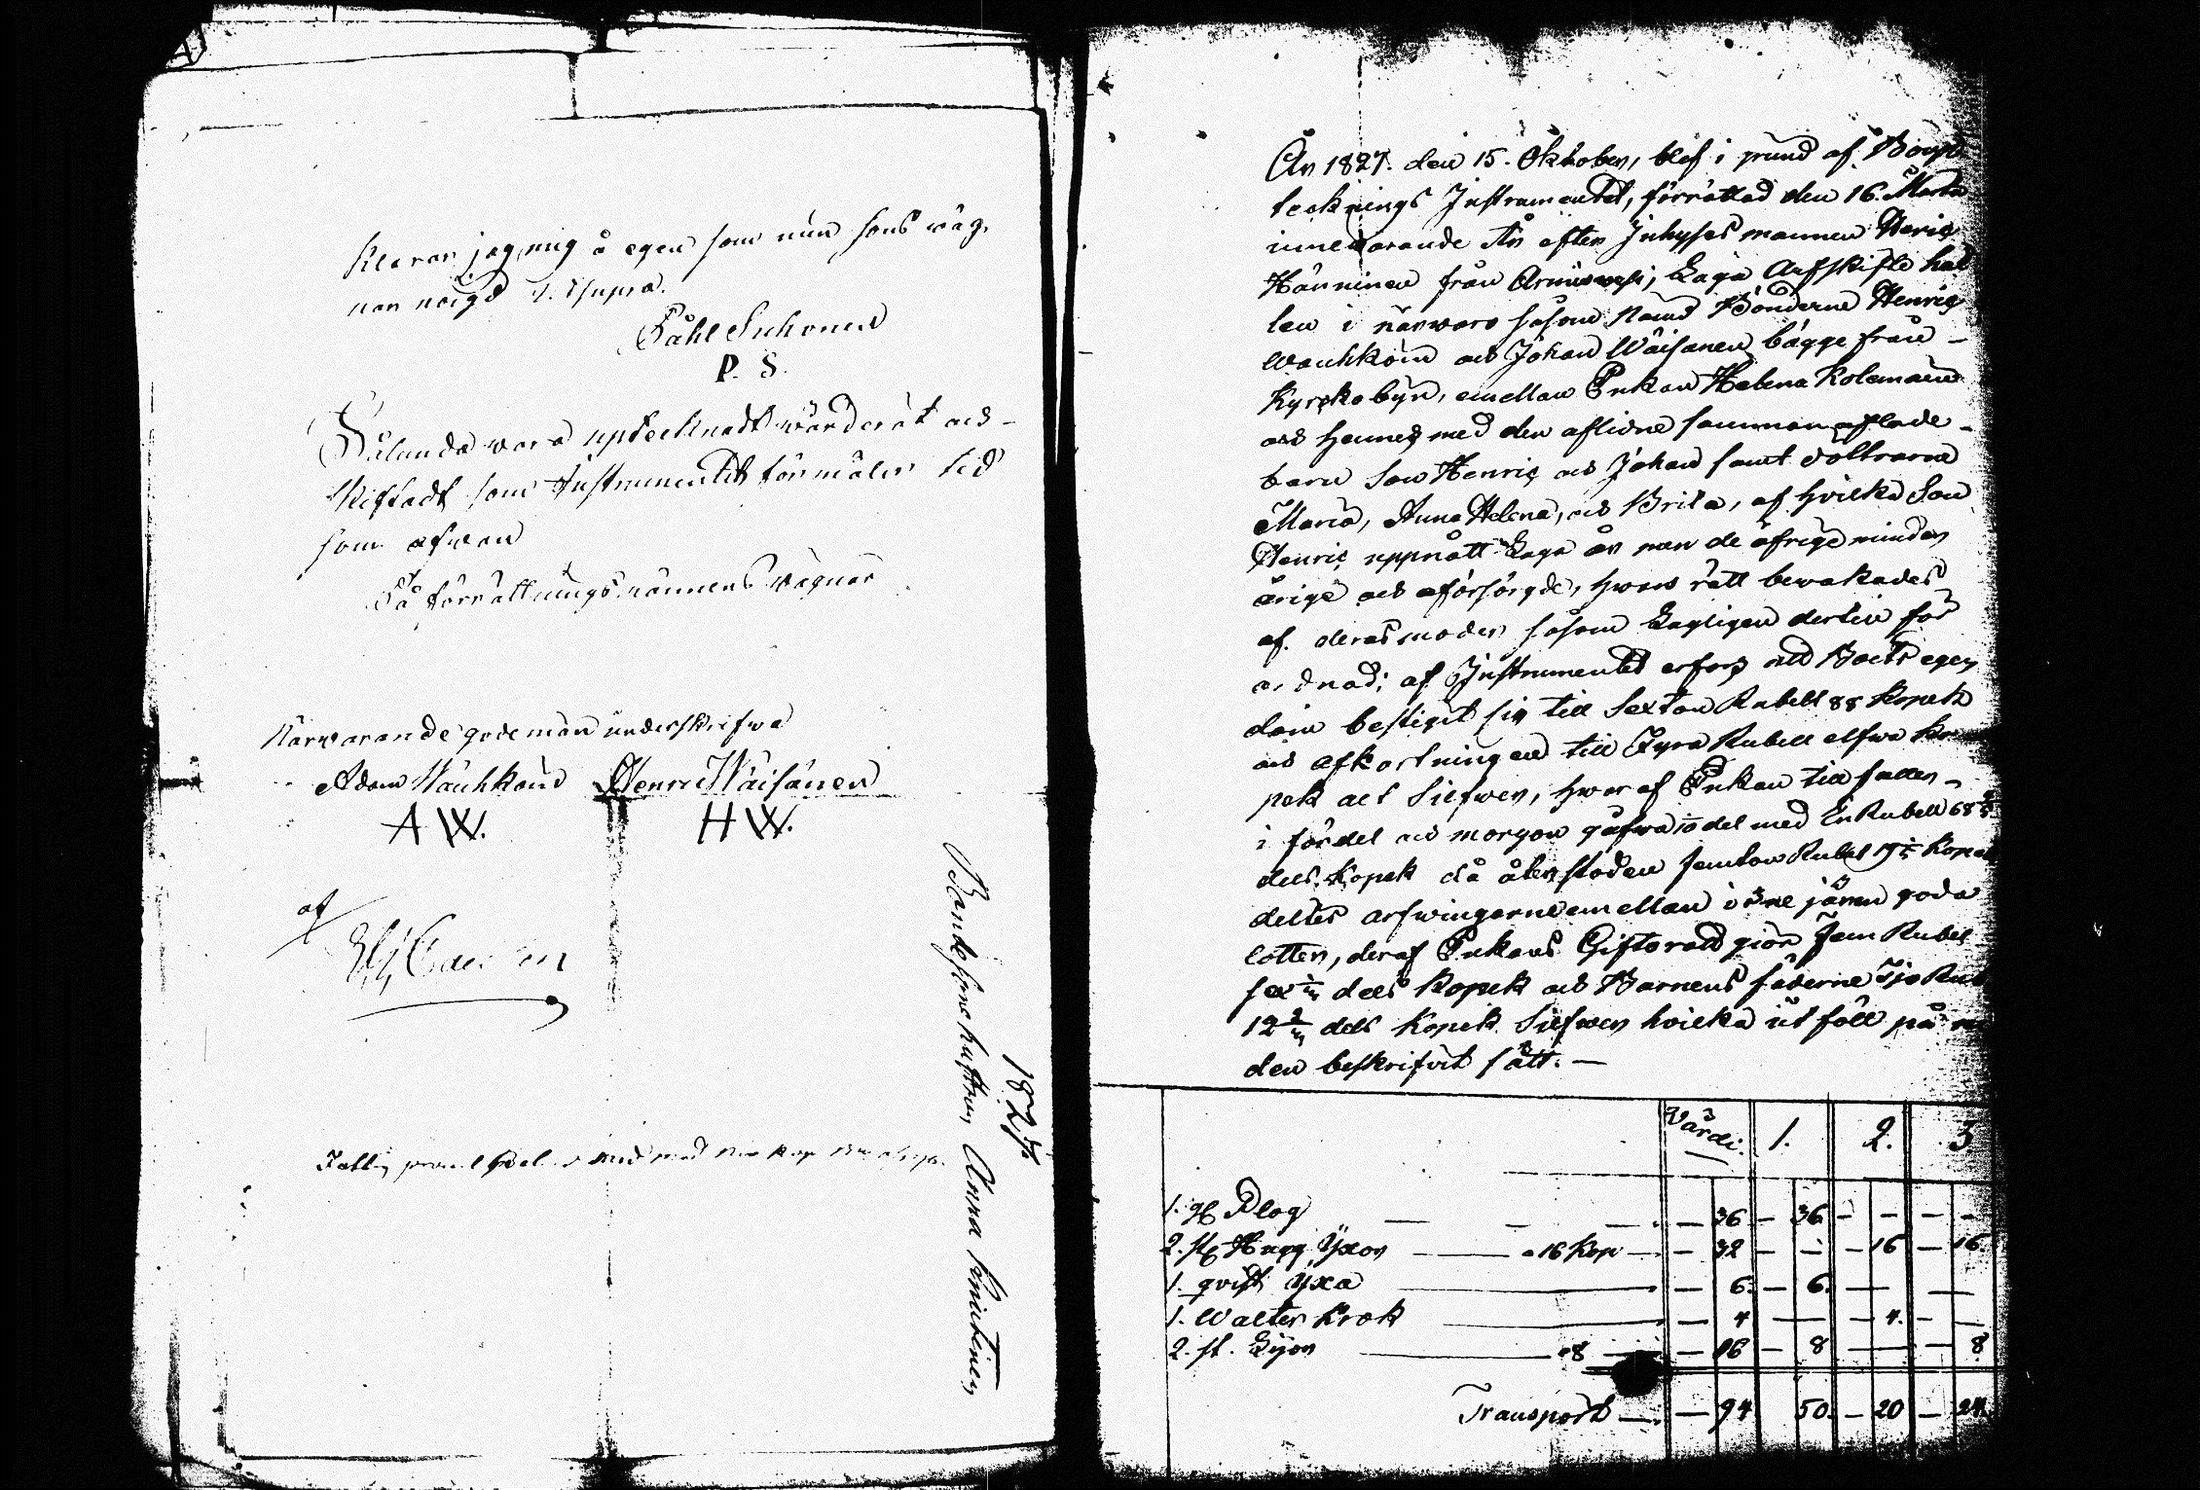 klarar jag mig å egen som min sons väg,
nar nöigd D. Supra.
Påhl Suhonen
P. S.
Sålunda vara uptecknadt värderat och
skiftadt som Instrumentet förmäler tid
som ofvan
På förrättningsmännens vägnar
Närvarande gode män underskrifva
Adam Vauhkoin Henric Wäisänen
A W. H W.
af
1827
Bondesonehustrun Anna
År 1827. den 15. Oktober, blef i grund af Boup-
tecknings Instrumentet, förrättad den 16. Martii
innevarande År efter Inhyses mannen Henric
Hänninen från Laga Arfskifte hål
len i närvaro såsom Nämd Bönderne Henric
Wauhkoin och Johan Wäisänen bägge från
Kyrkobÿn, emellan Enkan Helena Kolemain
och hennes med den aflidne sammanaflade
barn Son Henric och Johan samt döttrarne
Maria, Anna Helena, och Brita, af hvilka Son
Henric uppnått Laga år men de öfrige minder
årige och oförsörgde, hvars rätt bevakades
af deras moder såsom Lagligen dertill för
ordnad; af Instrumentet erfars att Boets egen
dom bestigit sig till Sexton Rubell 88 Kopek
och afkortningen till Fyra Rubell elfva Ko
pek allt Silfwer, hwaraf Enkan tillfaller
i fördel och morgongåfva 1/10 del med En Rubell 68
dels Kopek då återstoden femton Rubel 19 Kopek
deltes arfwingarne emellan i sine jämn goda
lotter, deraf Enkans Giftorätt giör Fem Rubel
sex dels Kopek och Barnens fäderne Tjo Rub
12 dels Kopek Silfwer hvilka utföll på
den beskrifvit sätt.
Värdi. 1. 2. 3
1. st Plog — — — — 36 — 36 — — — —
2. st Hugg Ÿxor — a 16 Kop — — 32 — — — 16 — 16
1. qvist ÿxa — — 6. — 6. — — —
1. Walter Krok — — 4 — — — 4. — —
2. st. Lijor — a 8 — — 16 — 8 — — — 8
Transport — — 94 50. — 20 — 24.